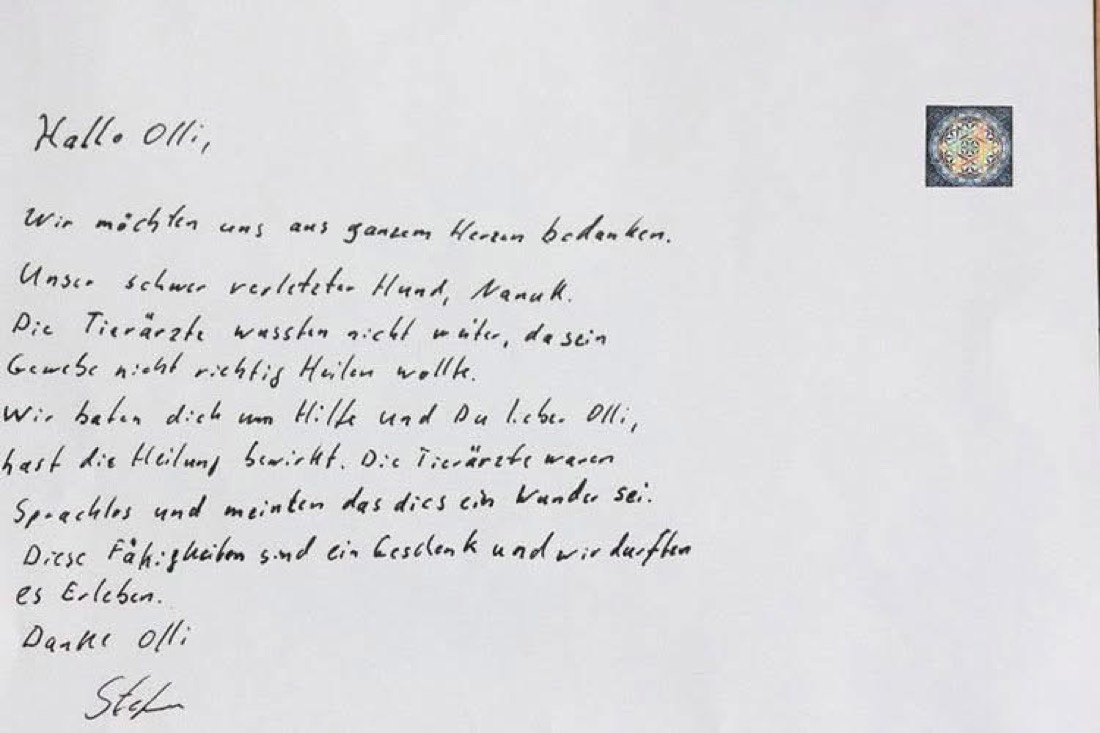 Hallo Olli,
Wir möchten uns aus ganzem Herzen bedanken.
Unser schwer verletzter Hund, Nanuk.
Die Tierärzte wussten nicht weiter, da sein
Gewebe nicht richtig Heilen wollte.
Wir baten dich um Hilfe und Du lieber Olli,
hast die Heilung bewirkt. Die Tierärzte waren
Sprachlos und meinten das dies ein Wunder sei.
Diese Fähigkeiten sind ein Geschenk und wir durften
es Erleben.
Danke Olli